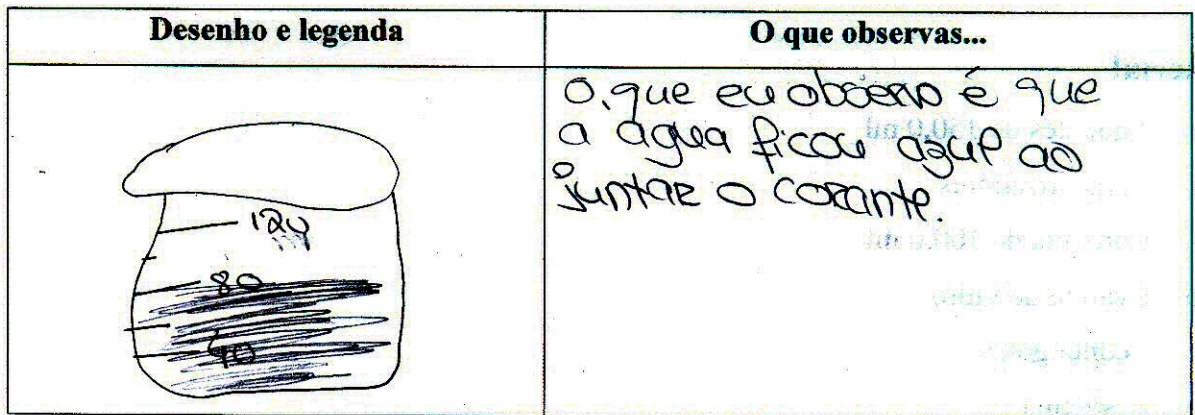 Desenho e legenda
O que observas...
O que eu observo é que
a agua ficou azul ao
juntar o corante.
120
80
40